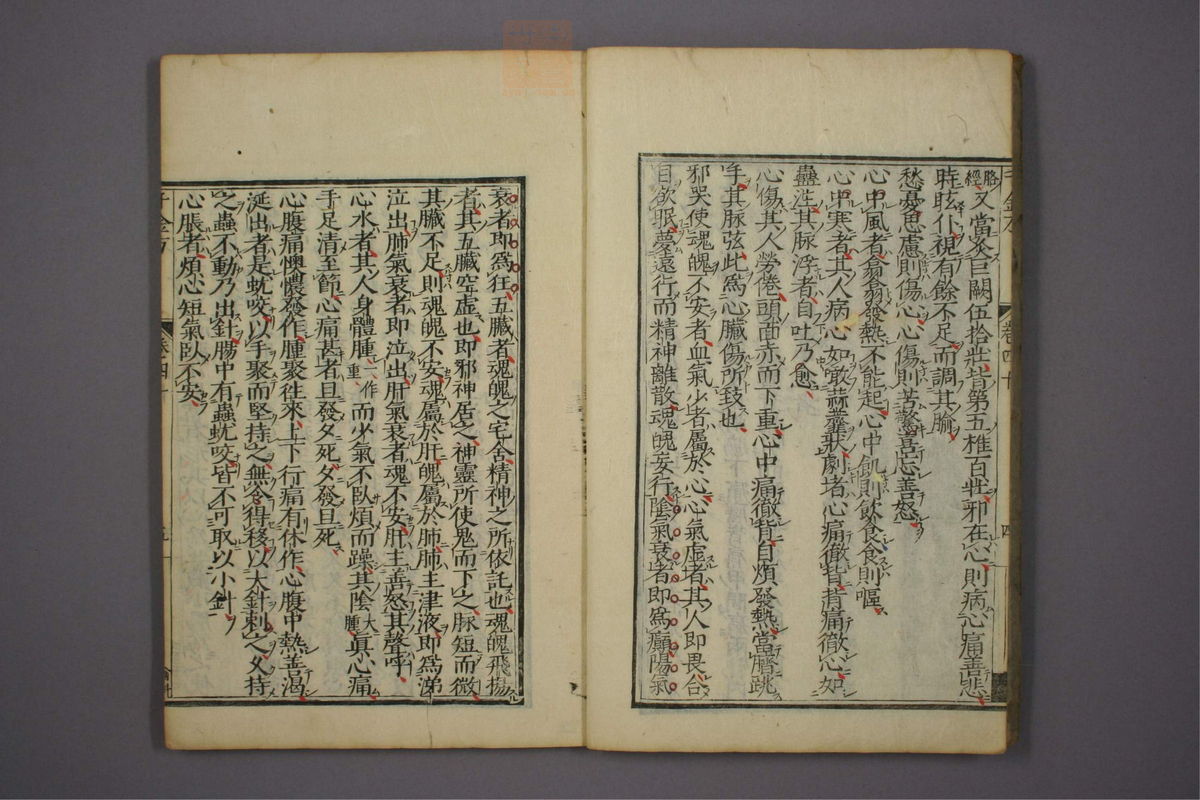 胳經又當灸巨闕伍拾壯背第五椎百壯邪在心則病心痛善悲
時眩仆視有餘不足而調其腧
愁憂思慮則傷心心傷則苦驚喜忘善怒
心中風者翕翕發熱不能起心中飢則飲食食則嘔
心中寒者其人病心如噉蒜虀狀劇者心痛徹背背痛徹心如
蠱注其脉浮者自吐乃愈
心傷其人勞倦頭面赤而下重心中痛徹背自煩發熱當臍跳
手其脉弦此爲心臟傷所致也
邪哭使魂魄不安者血氣少者屬於心心氣虛者其人即畏合
目欲眠夢遠行而精神離散魂魄妄行陰氣衰者即爲癲陽氣
千金方
卷四十
四
衰者即爲狂五臟者魂魄之宅舍精神之所依託也魂魄飛揚
者其五臟空虛也即邪神居之神靈所使鬼而下之脉短而微
其臟不足則魂魄不安魂屬於肝魄屬於肺肺主津液即爲涕
泣出肺氣衰者即泣出肝氣衰者魂不安肝主善怒其聲呼
心水者其人身體腫一作重而少氣不臥煩而躁其陰大腫眞心痛
手足清至節心痛甚者旦發夕死夕發旦死
心腹痛懊憹發作腫聚往來上下行痛有休作心腹中熱善渴
涎出者是蚘咬以手聚而堅持之無令得移以大針刺之久持
之蟲不動乃出針腸中有蟲蚘咬皆不可取以小針
心脹者煩心短氣臥不安
千金方
卷四十